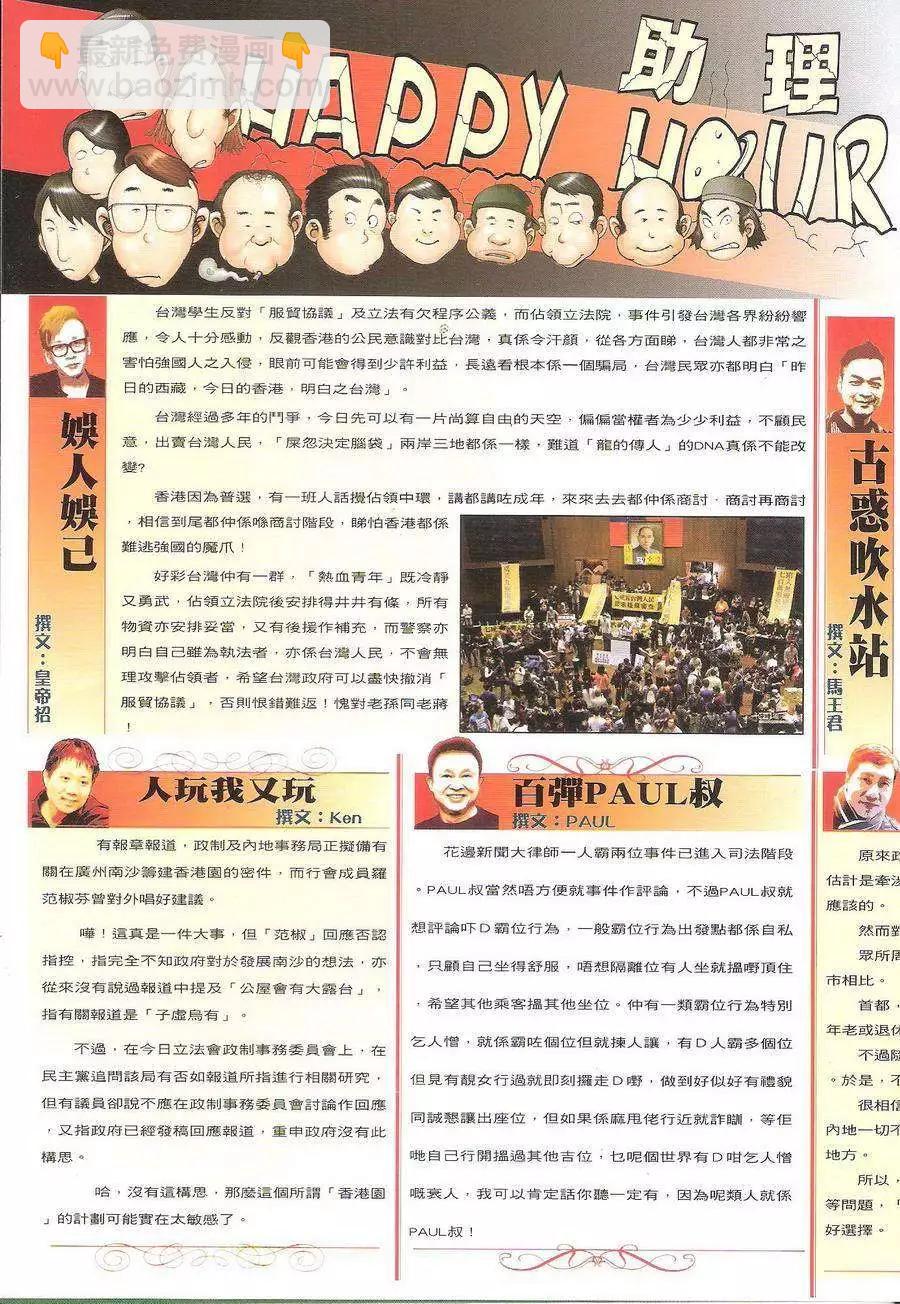 👇最新免費漫画👇
www.baozimh.com
助理
HAPPY HOUR
娛人娛己
撰文：皇帝招
台灣學生反對「服貿協議」及立法有欠程序公義，而佔領立法院，事件引發台灣各界紛紛響
應，令人十分感動，反觀香港的公民意識對比台灣，真係令汗顏，從各方面睇，台灣人都非常之
害怕強國人之入侵，眼前可能會得到少許利益，長遠看根本係一個騙局，台灣民眾亦都明白「昨
日的西藏，今日的香港，明白之台灣」。
台灣經過多年的鬥爭，今日先可以有一片尚算自由的天空，偏偏當權者為少少利益，不顧民
意，出賣台灣人民，「屎忽決定腦袋」兩岸三地都係一樣，難道「龍的傳人」的DNA真係不能改
變?
香港因為普選，有一班人話攪佔領中環，講都講咗成年，來來去去都仲係商討，商討再商討
，相信到尾都仲係喺商討階段，睇怕香港都係
難逃強國的魔爪！
好彩台灣仲有一群，「熱血青年」既冷靜
又勇武，佔領立法院後安排得井井有條，所有
物資亦安排妥當，又有後援作補充，而警察亦
明白自己雖為執法者，亦係台灣人民，不會無
理攻擊佔領者，希望台灣政府可以盡快撤消「
服貿協議」，否則恨錯難返！愧對老孫同老蔣
！
古惑吹水站
撰文：馬王君
人玩我又玩
撰文：Ken
有報章報道，政制及內地事務局正擬備有
關在廣州南沙籌建香港園的密件，而行會成員羅
范椒芬曾對外唱好建議。
嘩！這真是一件大事，但「范椒」回應否認
指控，指完全不知政府對於發展南沙的想法，亦
從來沒有說過報道中提及「公屋會有大露台」，
指有關報道是「子虛烏有」。
不過，在今日立法會政制事務委員會上，在
民主黨追問該局有否如報道所指進行相關研究，
但有議員卻說不應在政制事務委員會討論作回應
，又指政府已經發稿回應報道，重申政府沒有此
構思。
哈，沒有這構思，那麼這個所謂「香港園
」的計劃可能實在太敏感了。
百彈PAUL叔
撰文：PAUL
花邊新聞大律師一人霸兩位事件已進入司法階段
。PAUL叔當然唔方便就事件作評論，不過PAUL叔就
想評論吓D霸位行為，一般霸位行為出發點都係自私
，只顧自己坐得舒服，唔想隔離位有人坐就搵嘢頂住
，希望其他乘客搵其他坐位。仲有一類霸位行為特別
乞人憎，就係霸咗個位但就揀人讓，有D人霸多個位
但見有靚女行過就即刻攞走D嘢，做到好似好有禮貌
同誠懇讓出座位，但如果係麻甩佬行近就詐瞓，等佢
哋自己行開搵過其他吉位，乜呢個世界有D咁乞人憎
嘅衰人，我可以肯定話你聽一定有，因為呢類人就係
PAUL叔！
原來政
估計是牽涉
應該的。
然而對
眾所周
市相比。
首都，
年老或退休
不過隨
。於是，不
很相信
內地一切不
地方。
所以，
等問題，「
好選擇。